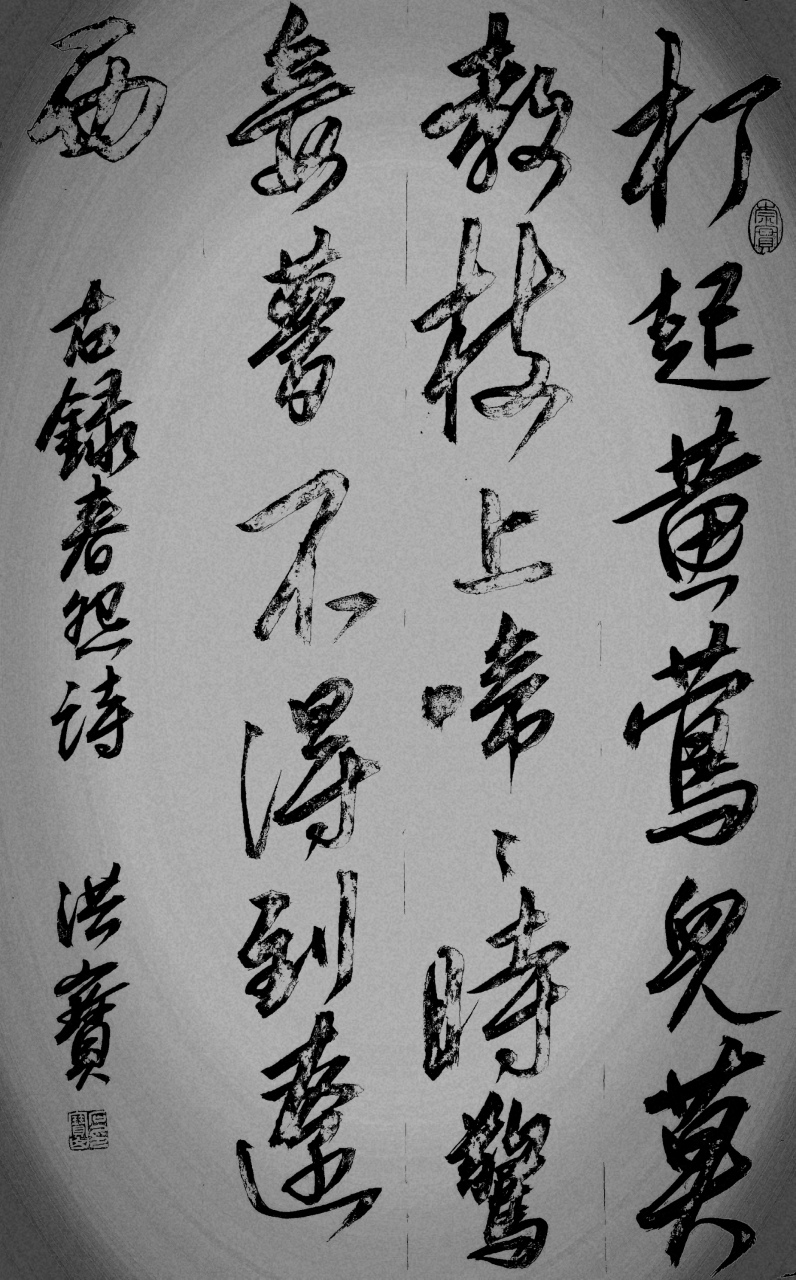 打起黃鶯兒莫
教枝上啼〻時驚
妾夢不得到遼
西
右錄春怨詩
洪寶